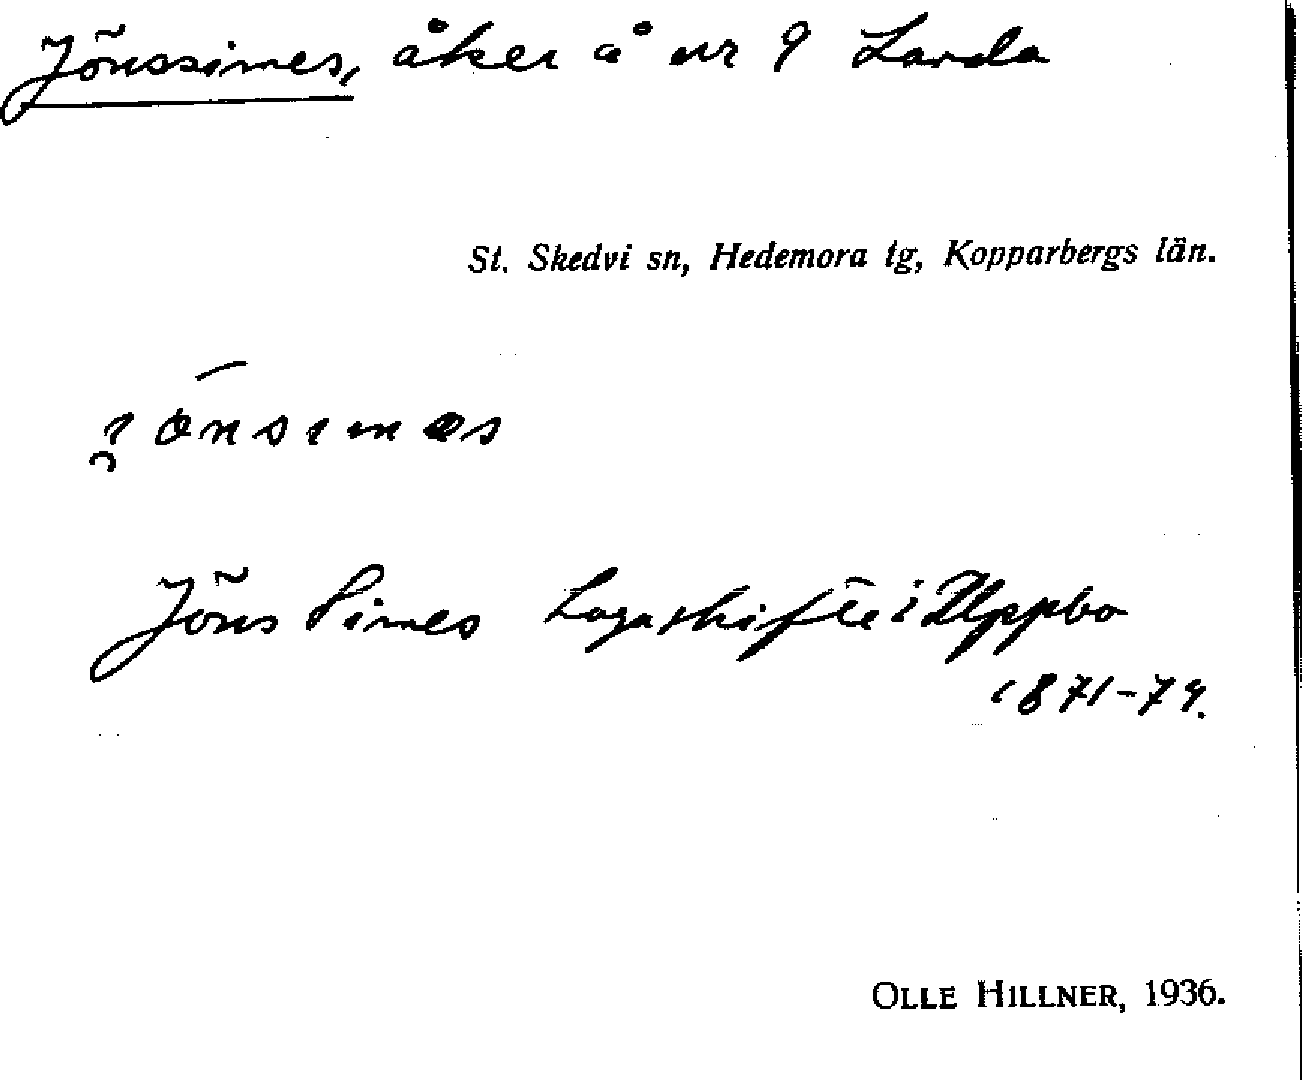 Jönssimes, åker å nr 9 Landa
St. Skedvi sn, Hedemora tg, Kopparbergs län.
Jöns Simes Lagaskifte i Uppbo
1871-79.
OLLE HILLNER, 1936.